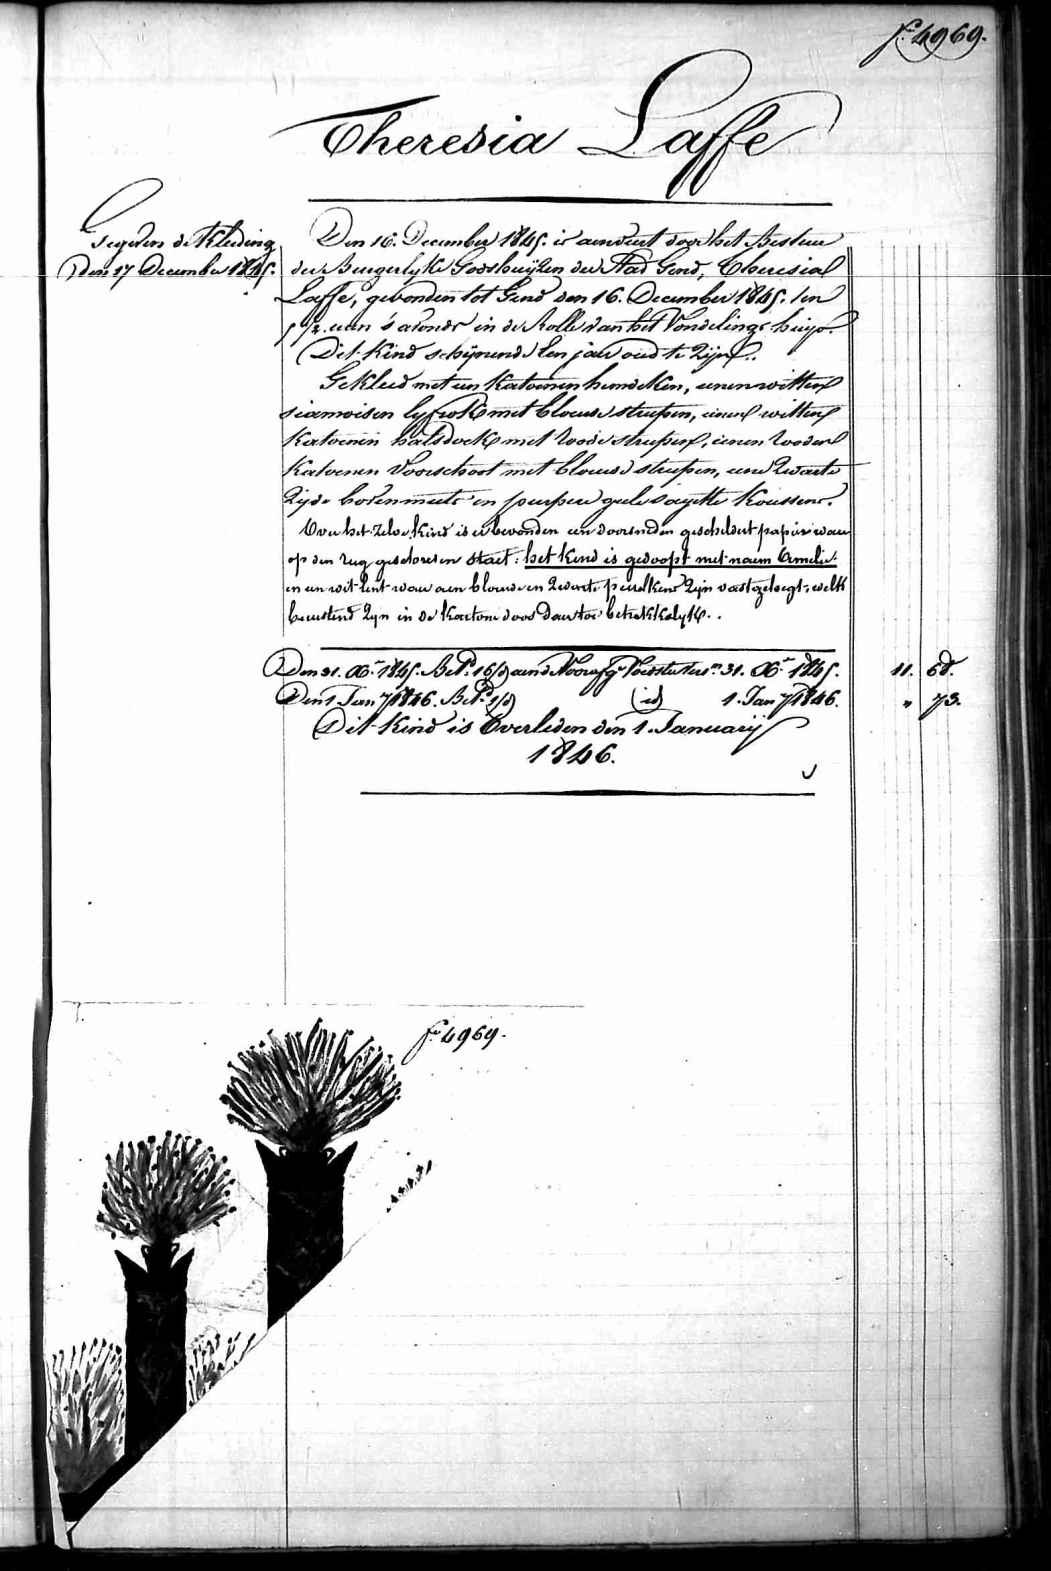 fº 4969.
Theresia Laffe
Gegeven de Kleeding
Den 17 December 1845.
Den 16. December 1845. is aenveert door het Bestier
der Burgerlyke Godshuijzen der Stad Gend, Theresia
Laffe, gevonden tot Gend den 16. December 1845. ten
5 1/2 uren 's avonds in de Rolle van het Vondelings huijs.
Dit kind schijnende Een jaer oud te Zijn.
Gekleed met een Katoenen hemdeken, eenen witten
siamoisen lyfrok met blauwe streepen, eenen witten
Katoenen halsdoek met roode streepen, eenen rooden
Katoenen Voorschoot met blauwe streepen, eene Zwarte
Zijde bovenmuts en purpere geele sayette Koussens.
Over het Zelve kind is er bevonden een doorsneden geschildert papier waer
op den rug geschreven staet: het kind is gedoopt met naem Amelie.
en een wit lint waer aen blauwe en Zwarte peirelkens Zijn vastgelegt; welk
berustend Zyn in de kartone doos daertoe betrekkelyk.
Den 31. Xbr. 1845. Bet. 16/d aen de Voorafg. Voedster tot 31. Xbr. 1845. 11. 68.
Den 1 Jan 7/1846. Bet. 1/d (id) 1. Jan 7/1846. " 73.
Dit kind is Overleden den 1. Januarij
1846.
fº 4969.